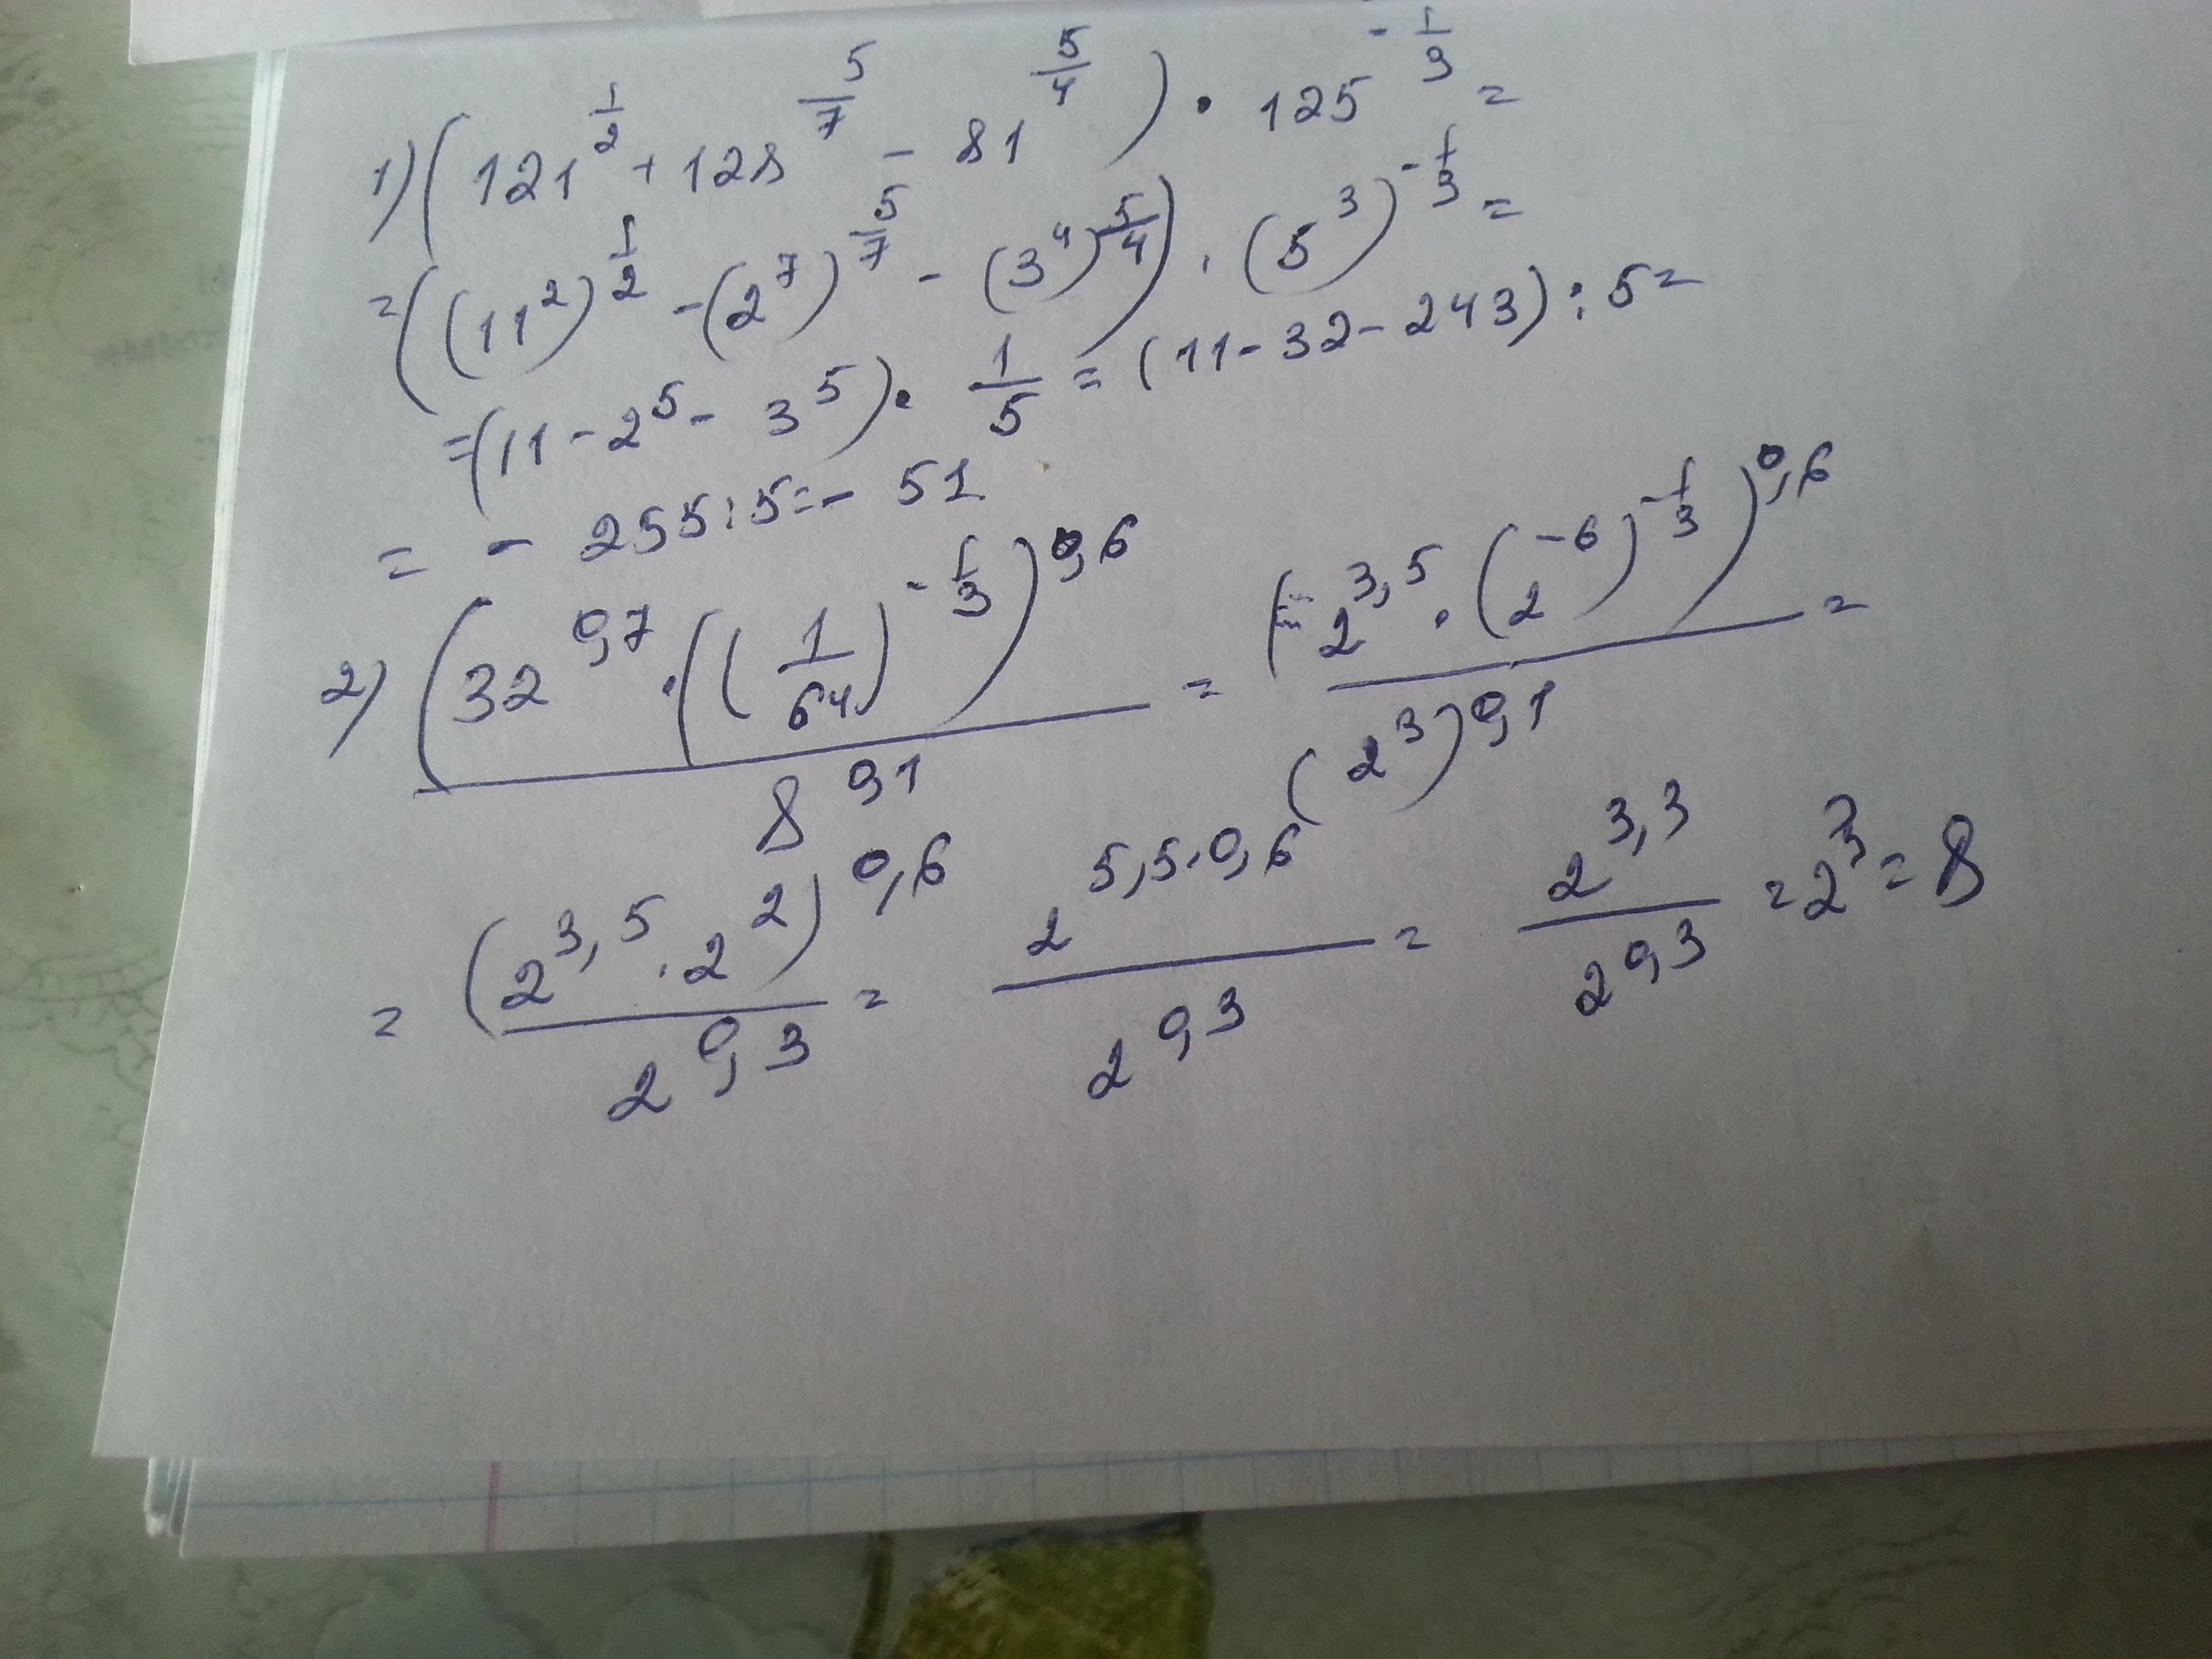 1) (121^{1/2} + 128^{5/7} - 81^{5/4}) · 125^{-1/3} =
= ((11^2)^{1/2} - (2^7)^{5/7} - (3^4)^{5/4}) · (5^3)^{-1/3} =
= (11 - 2^5 - 3^5) · 1/5 = (11 - 32 - 243) : 5 =
= - 255 : 5 = - 51
2) (32^{0,7} · ((1/64)^{-1/3})^{0,6} / 8^{0,1} = (2^{3,5} · (2^{-6})^{-1/3})^{0,6} / (2^3)^{0,1} =
= (2^{3,5} · 2^2)^{0,6} / 2^{0,3} = 2^{5,5·0,6} / 2^{0,3} = 2^{3,3} / 2^{0,3} = 2^3 = 8